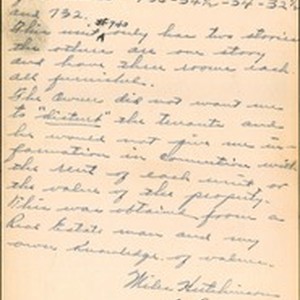 736-34½-34-32½
and 732.
#740
This unit only has two stories
the others are one story
and have three rooms each.
all furnished.
The owner did not want me
to "disturb" the tenants and
he would not give me in-
formation in connection with
the rent of each unit or
the value of the property.
This was obtained from a
Real Estate man and my
own knowledge of values.
Miles Hutchinson